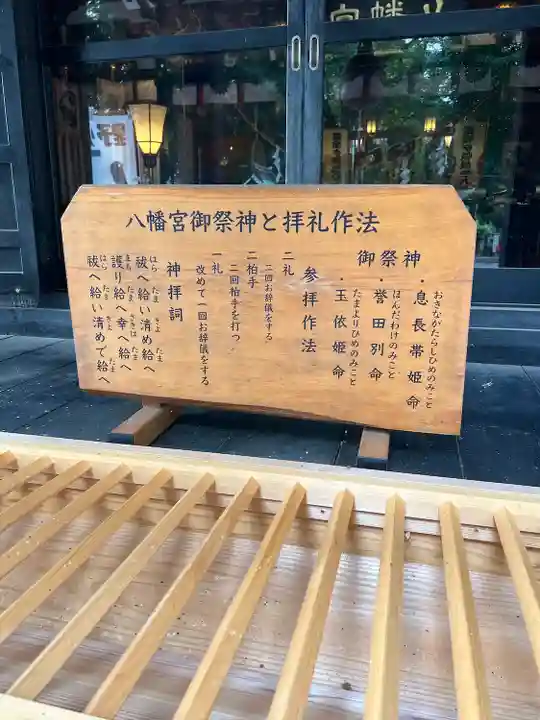 八幡宮御祭神と拝礼作法
御祭神
・息長帯姫命
おきながたらしひめのみこと
誉田別命
ほんだわけのみこと
・玉依姫命
たまよりひめのみこと
参拝作法
二礼
二回お辞儀をする
二柏手
二回柏手を打つ
一礼
改めて一回お辞儀をする
神拝詞
祓へ給い清め給へ
はら たま きよ たま
護り給へ幸へ給へ
まも たま さきは たま
祓へ給い清めて給へ
はら たま きよ たま